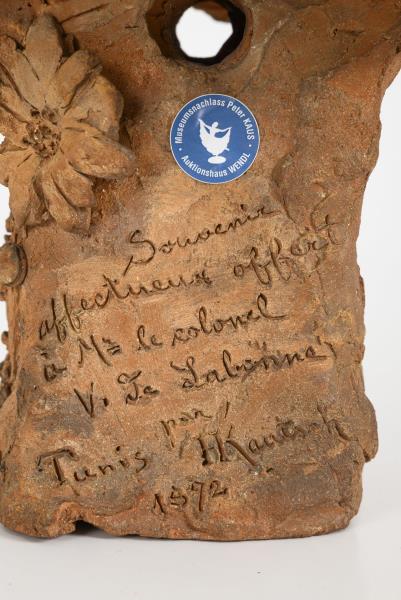 Museumsnachlass Peter KAUS
Auktionshaus WENDL
Souvenir
affectueux offert
à Mr le colonel
V. de Labonne
par
Tunis HKautsch
1872